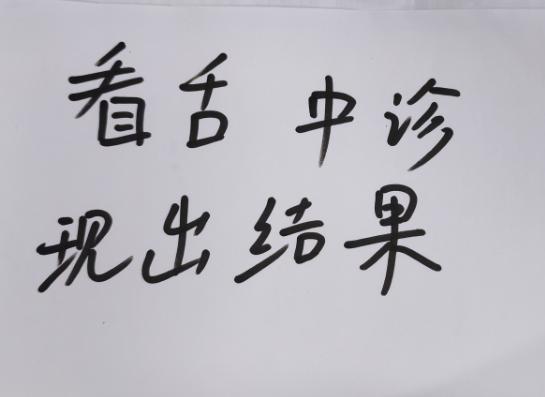 看舌 中诊
现出结果